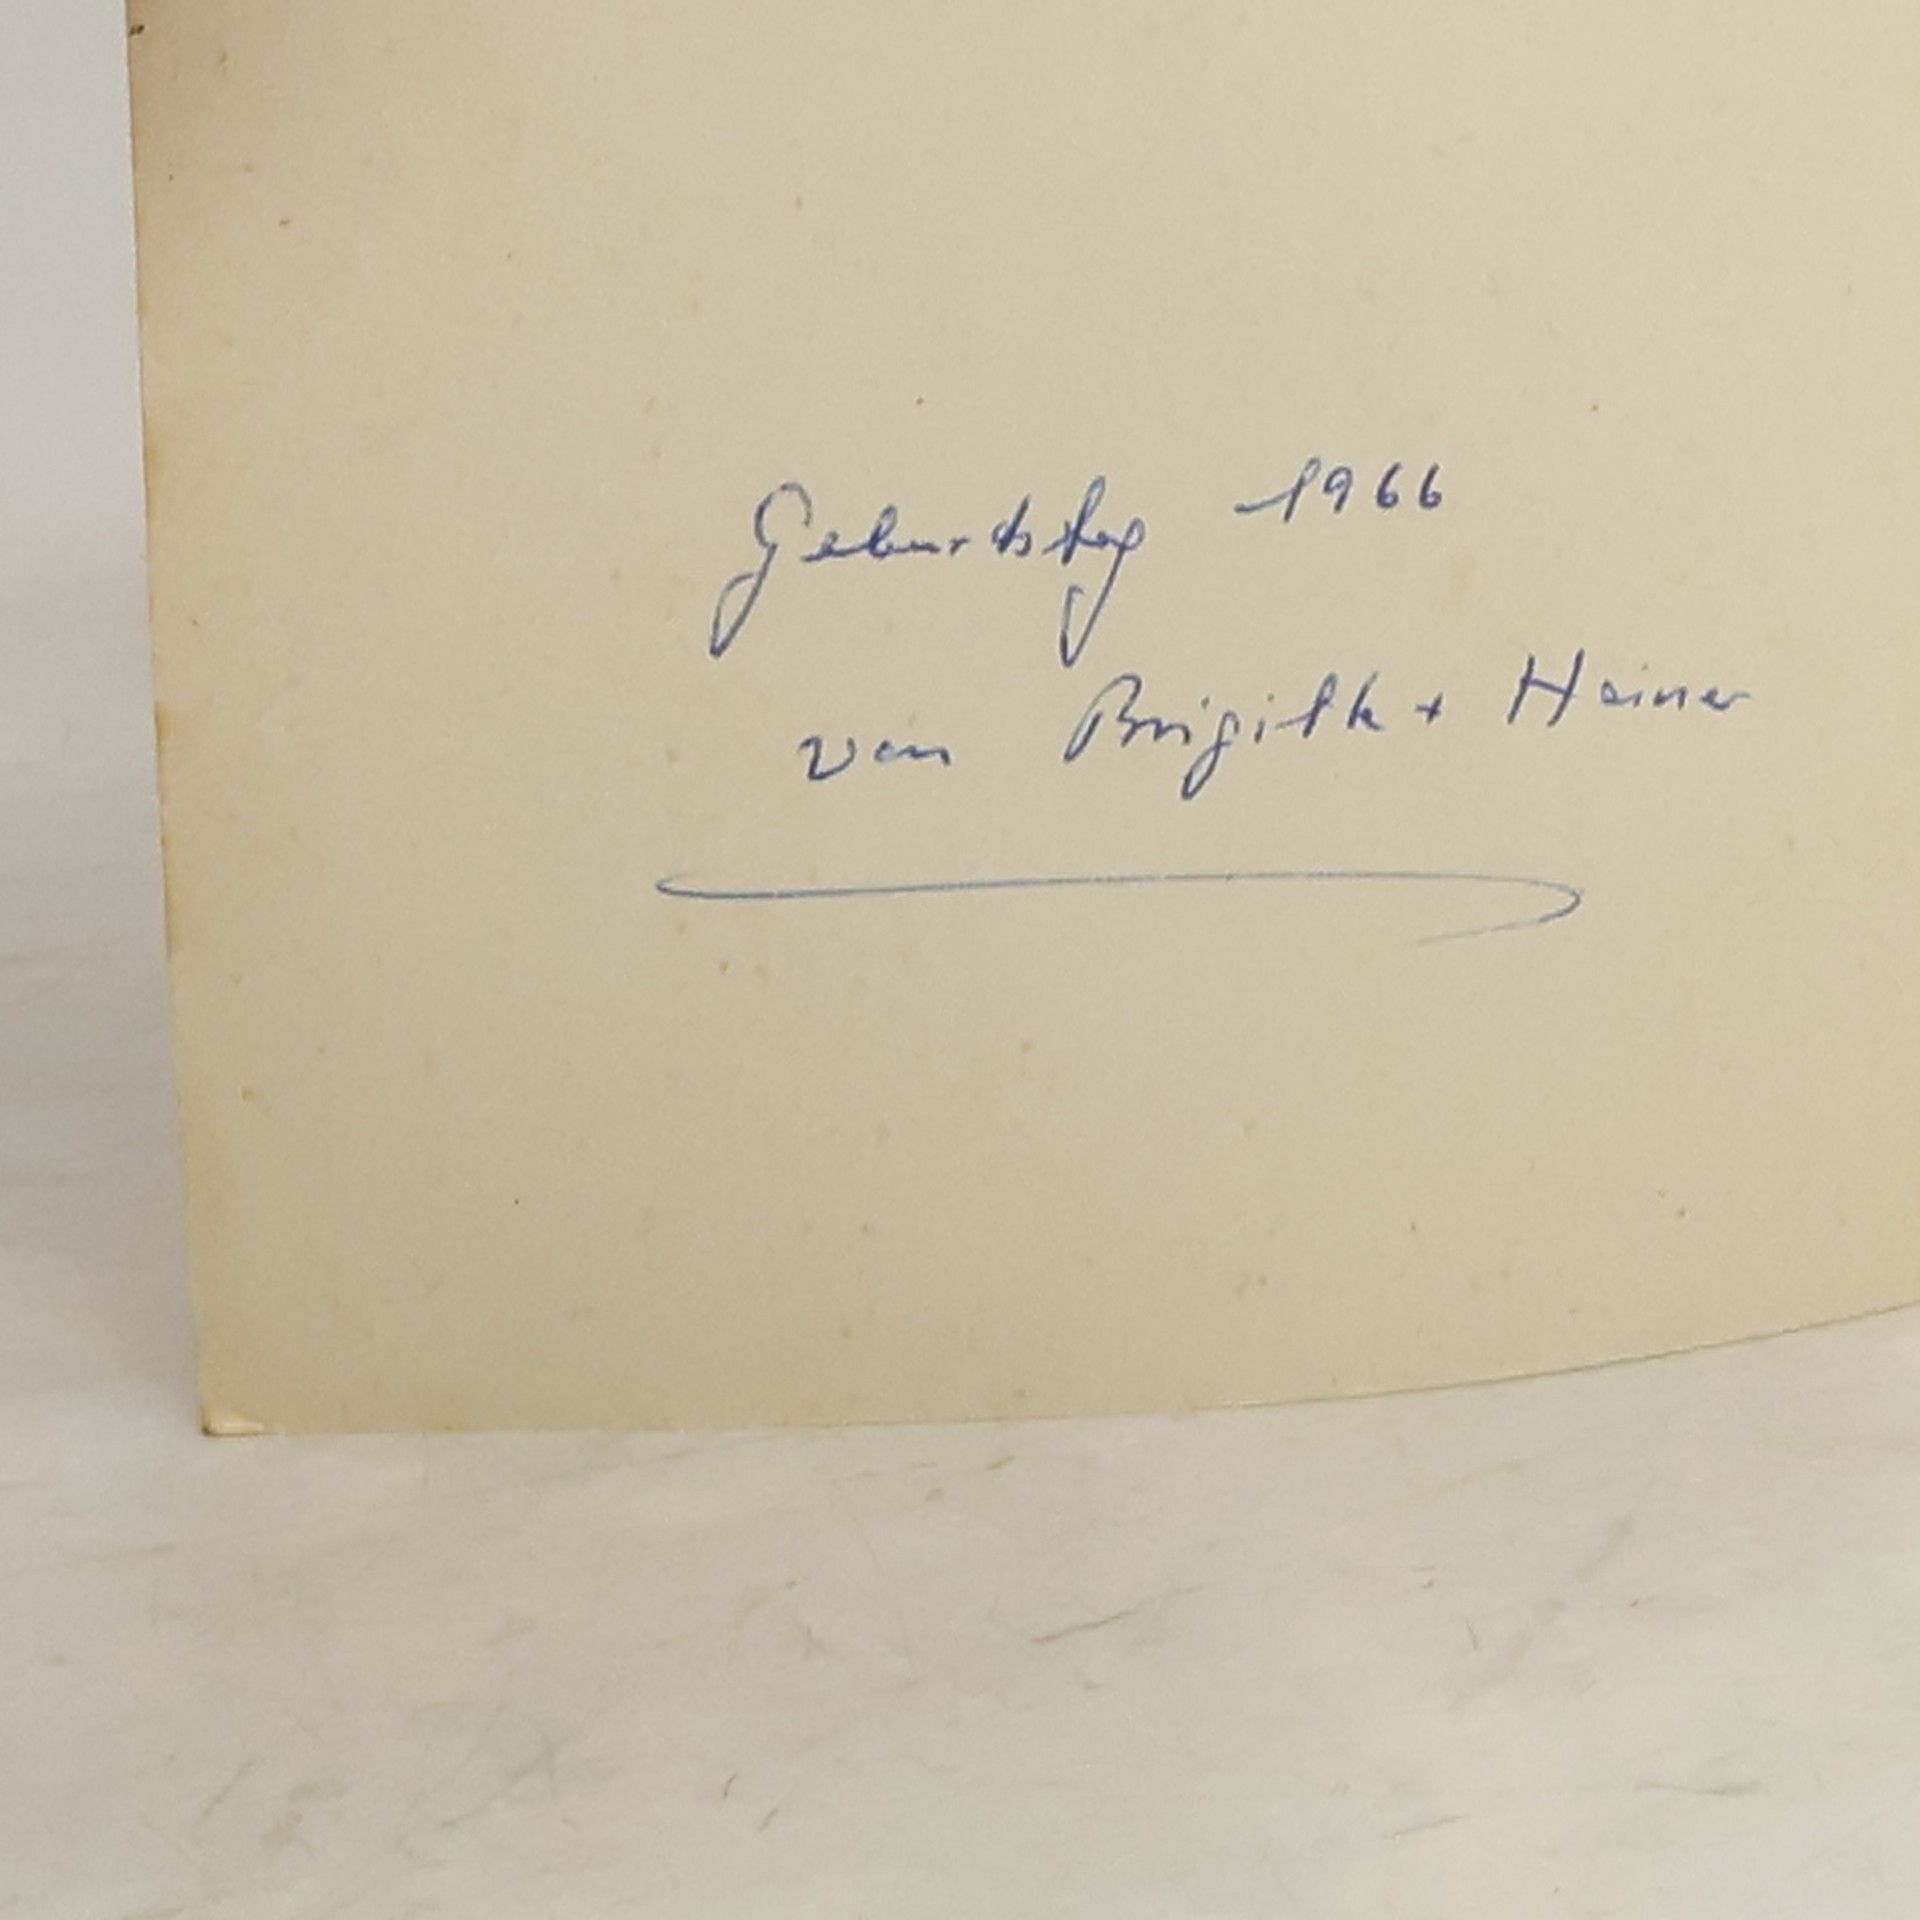 Geburtstag 1966
von Brigitte + Heiner